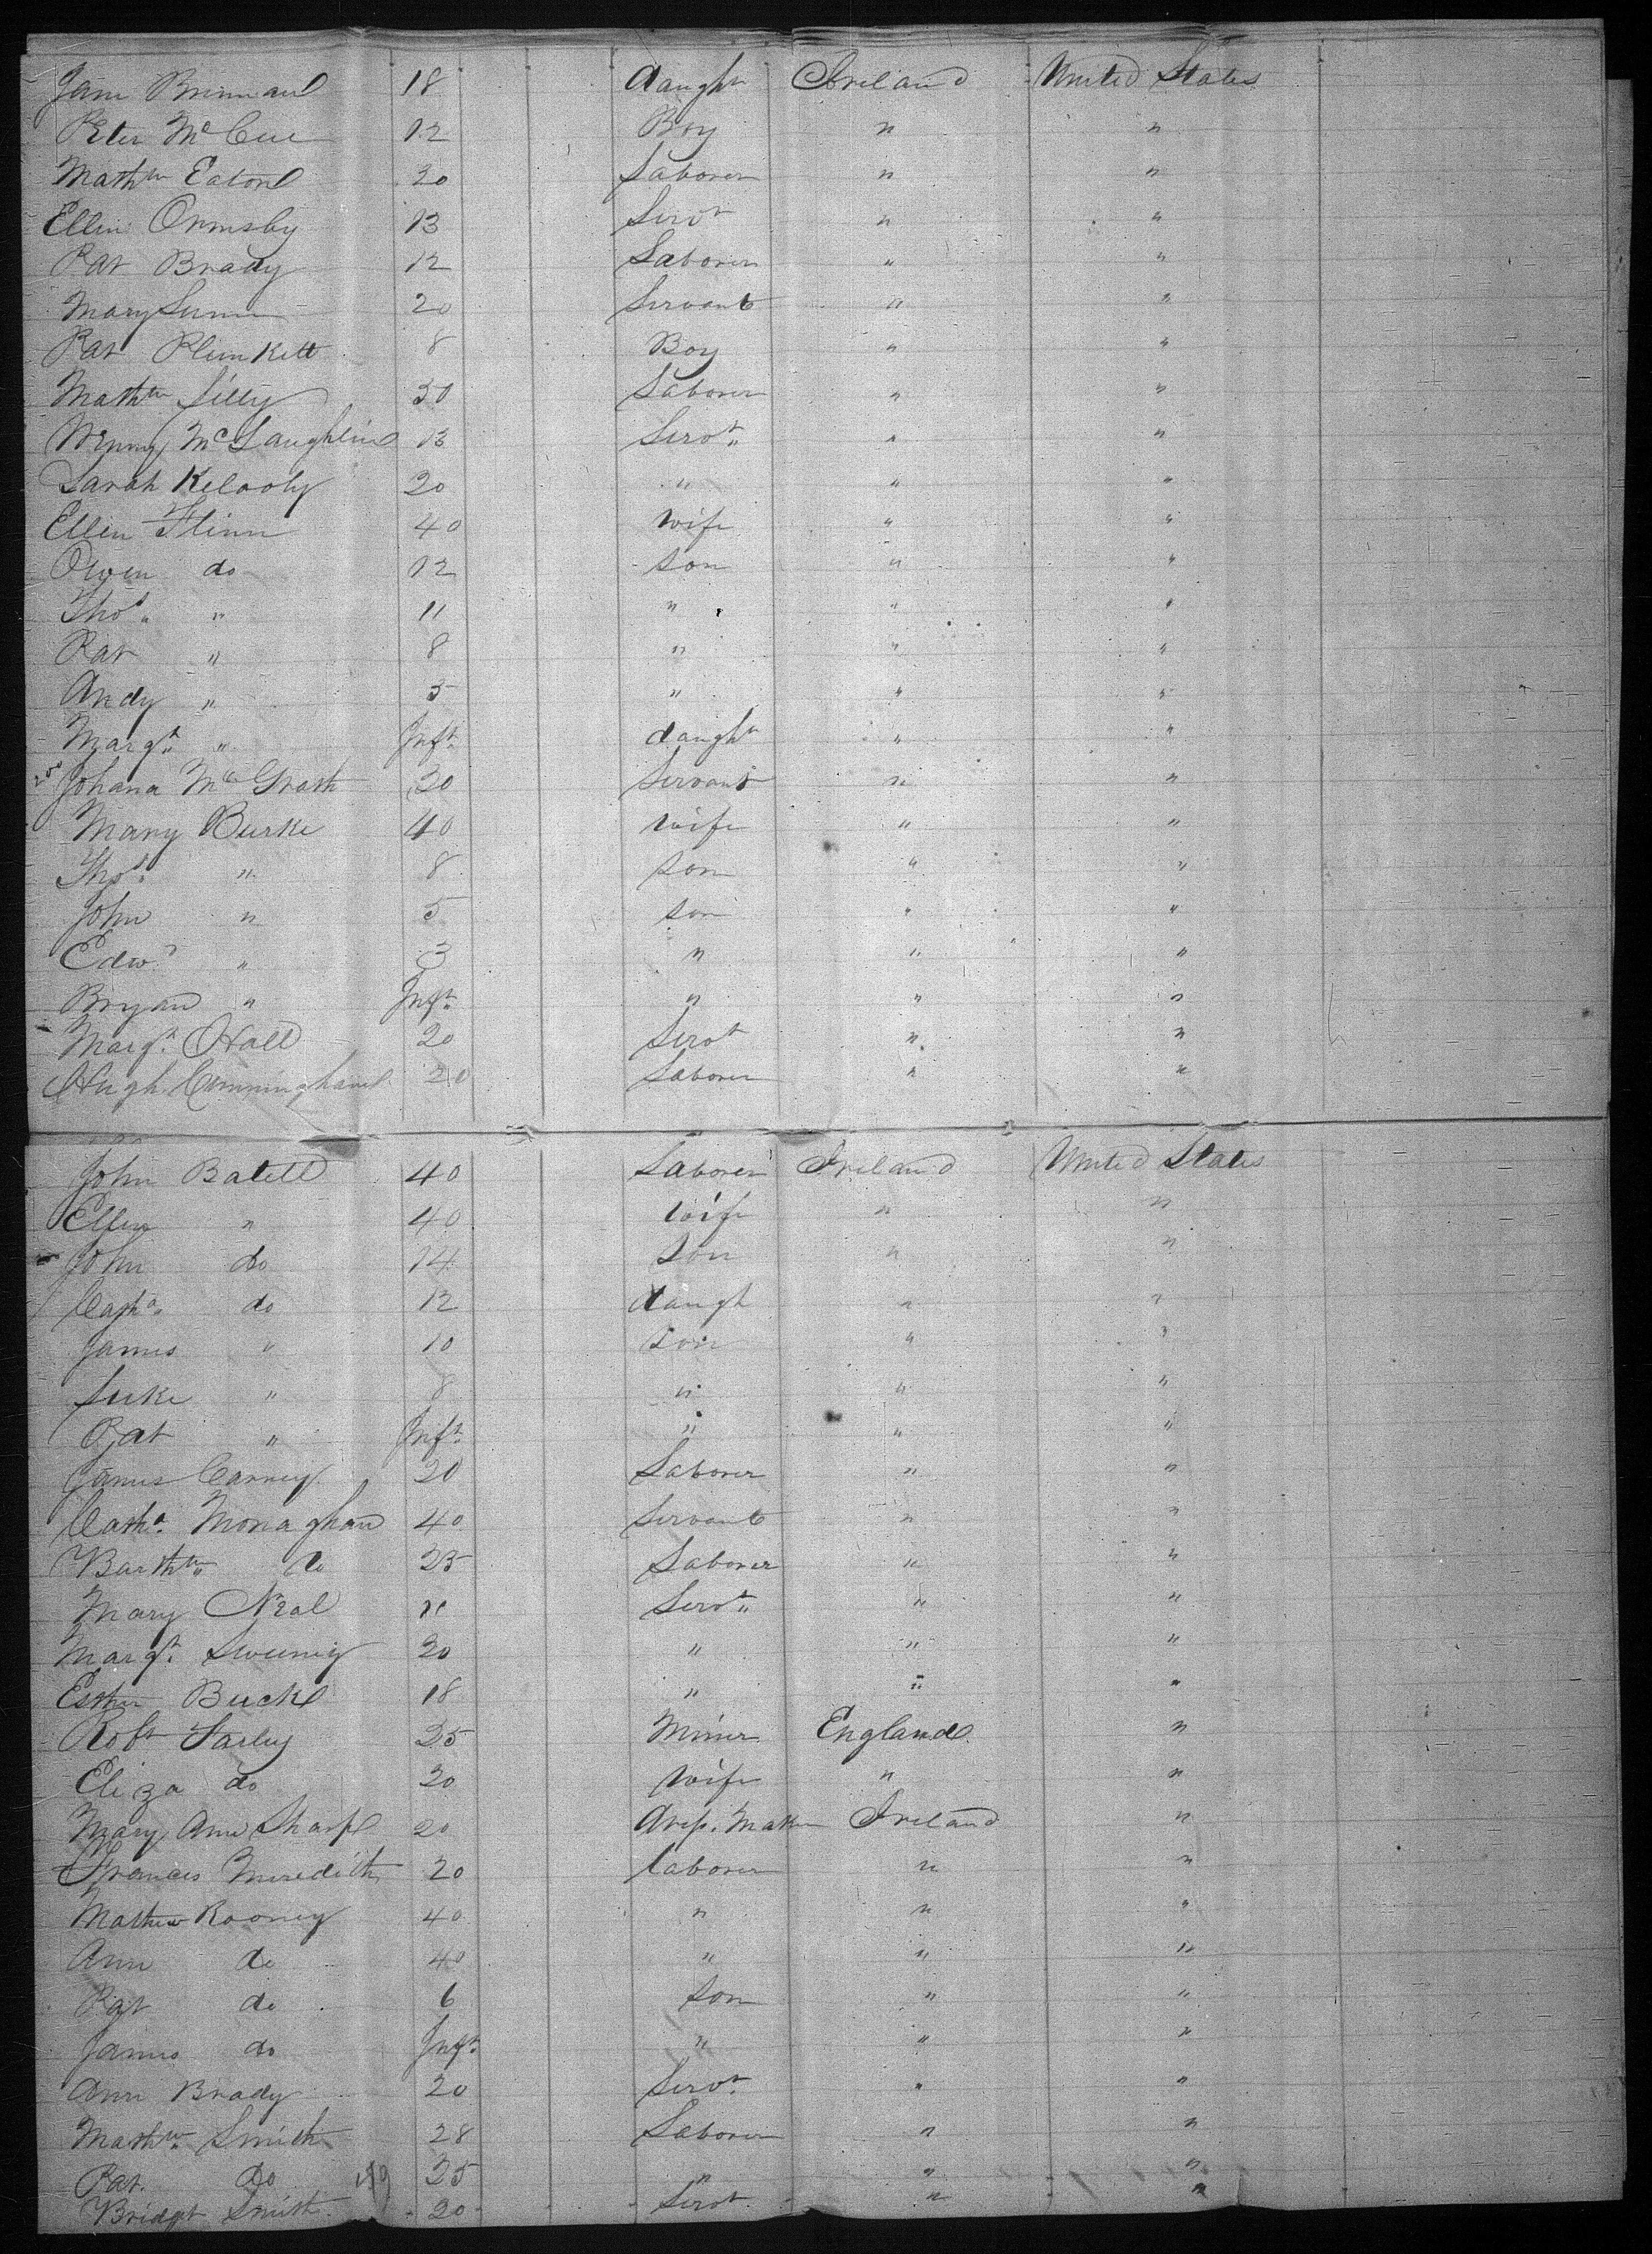 Jane Brennan 18 daughr Ireland United States
Peter McCue 12 Boy " "
Mathw Eaton 20 Laborer " "
Ellen Ormsby 13 Servt " "
Pat Brady 12 Laborer " "
Mary 20 Servant " "
Pat Plunkett 8 Boy " "
Mathw Lilly 30 Laborer " "
Winny McLaughlin 13 Servt " "
Sarah 20 " " "
Ellen Flinn 40 wife " "
Owen do 12 son " "
Thos " 11 " " "
Pat " 8 " " "
Andy " 5 " " "
Margt " Inft daughr " "
Johana McGrath 30 Servant " "
Mary Burke 40 wife " "
Thos " 8 son " "
John " 5 son " "
Edwd " 3 " " "
Bryan " Inft " " "
Margt Hall 20 Servt " "
Hugh Cunningham 20 Laborer " "
John Batell 40 Laborer Ireland United States
Ellen " 40 wife " "
John do 14 Son " "
Cathe do 12 daugh " "
James " 10 son " "
Luke " 8 " " "
Pat " Inft " " "
James Carney 20 Laborer " "
Cathe Monaghan 40 Servant " "
Barthw do 25 Laborer " "
Mary Neal 11 Servt " "
Margt Sweeney 20 " " "
Esther Buck 18 " " "
Robt Farley 25 Miner England "
Eliza do 20 wife " "
Mary Ann Sharpe 20 Dress Maker Ireland "
Frances Meredith 20 laborer " "
Mathew Rooney 40 " " "
Ann do 40 " " "
Pat do 6 son " "
James do Inft " " "
Ann Brady 20 Servt " "
Mathw Smith 28 Laborer " "
Pat do 25 " " "
Bridget Smith 20 Servt " "